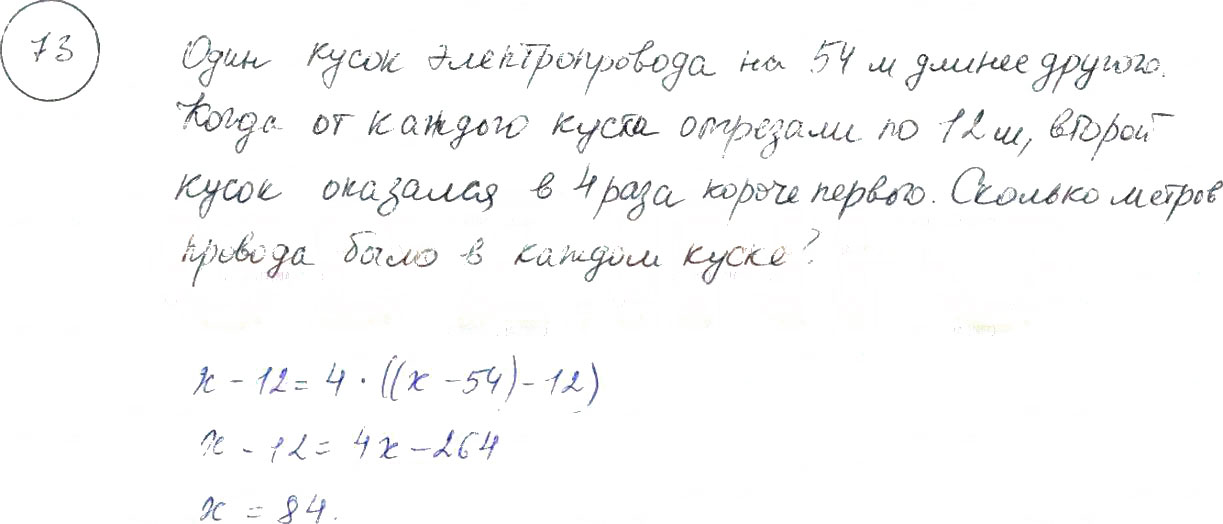 73
Один кусок электропровода на 54 м длинее другого.
Когда от каждого куста отрезали по 12 м, второй
кусок оказался в 4 раза короче первого. Сколько метров
провода было в каждом куске?
x - 12 = 4 · ((x - 54) - 12)
x - 12 = 4x - 264
x = 84.